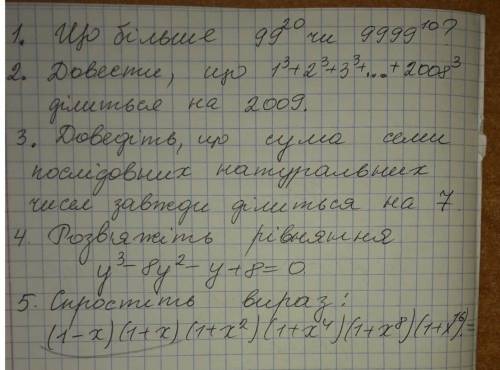 1. Що більше 99²⁰ чи 9999¹⁰?
2. Довести, що 1³+2³+3³+...+2008³
ділиться на 2009.
3. Доведіть, що сума семи
послідовних натуральних
чисел завжди ділиться на 7.
4. Розв'яжіть рівняння
y³-8y²-y+8=0.
5. Спростіть вираз:
(1-x)(1+x)(1+x²)(1+x⁴)(1+x⁸)(1+x¹⁶)=